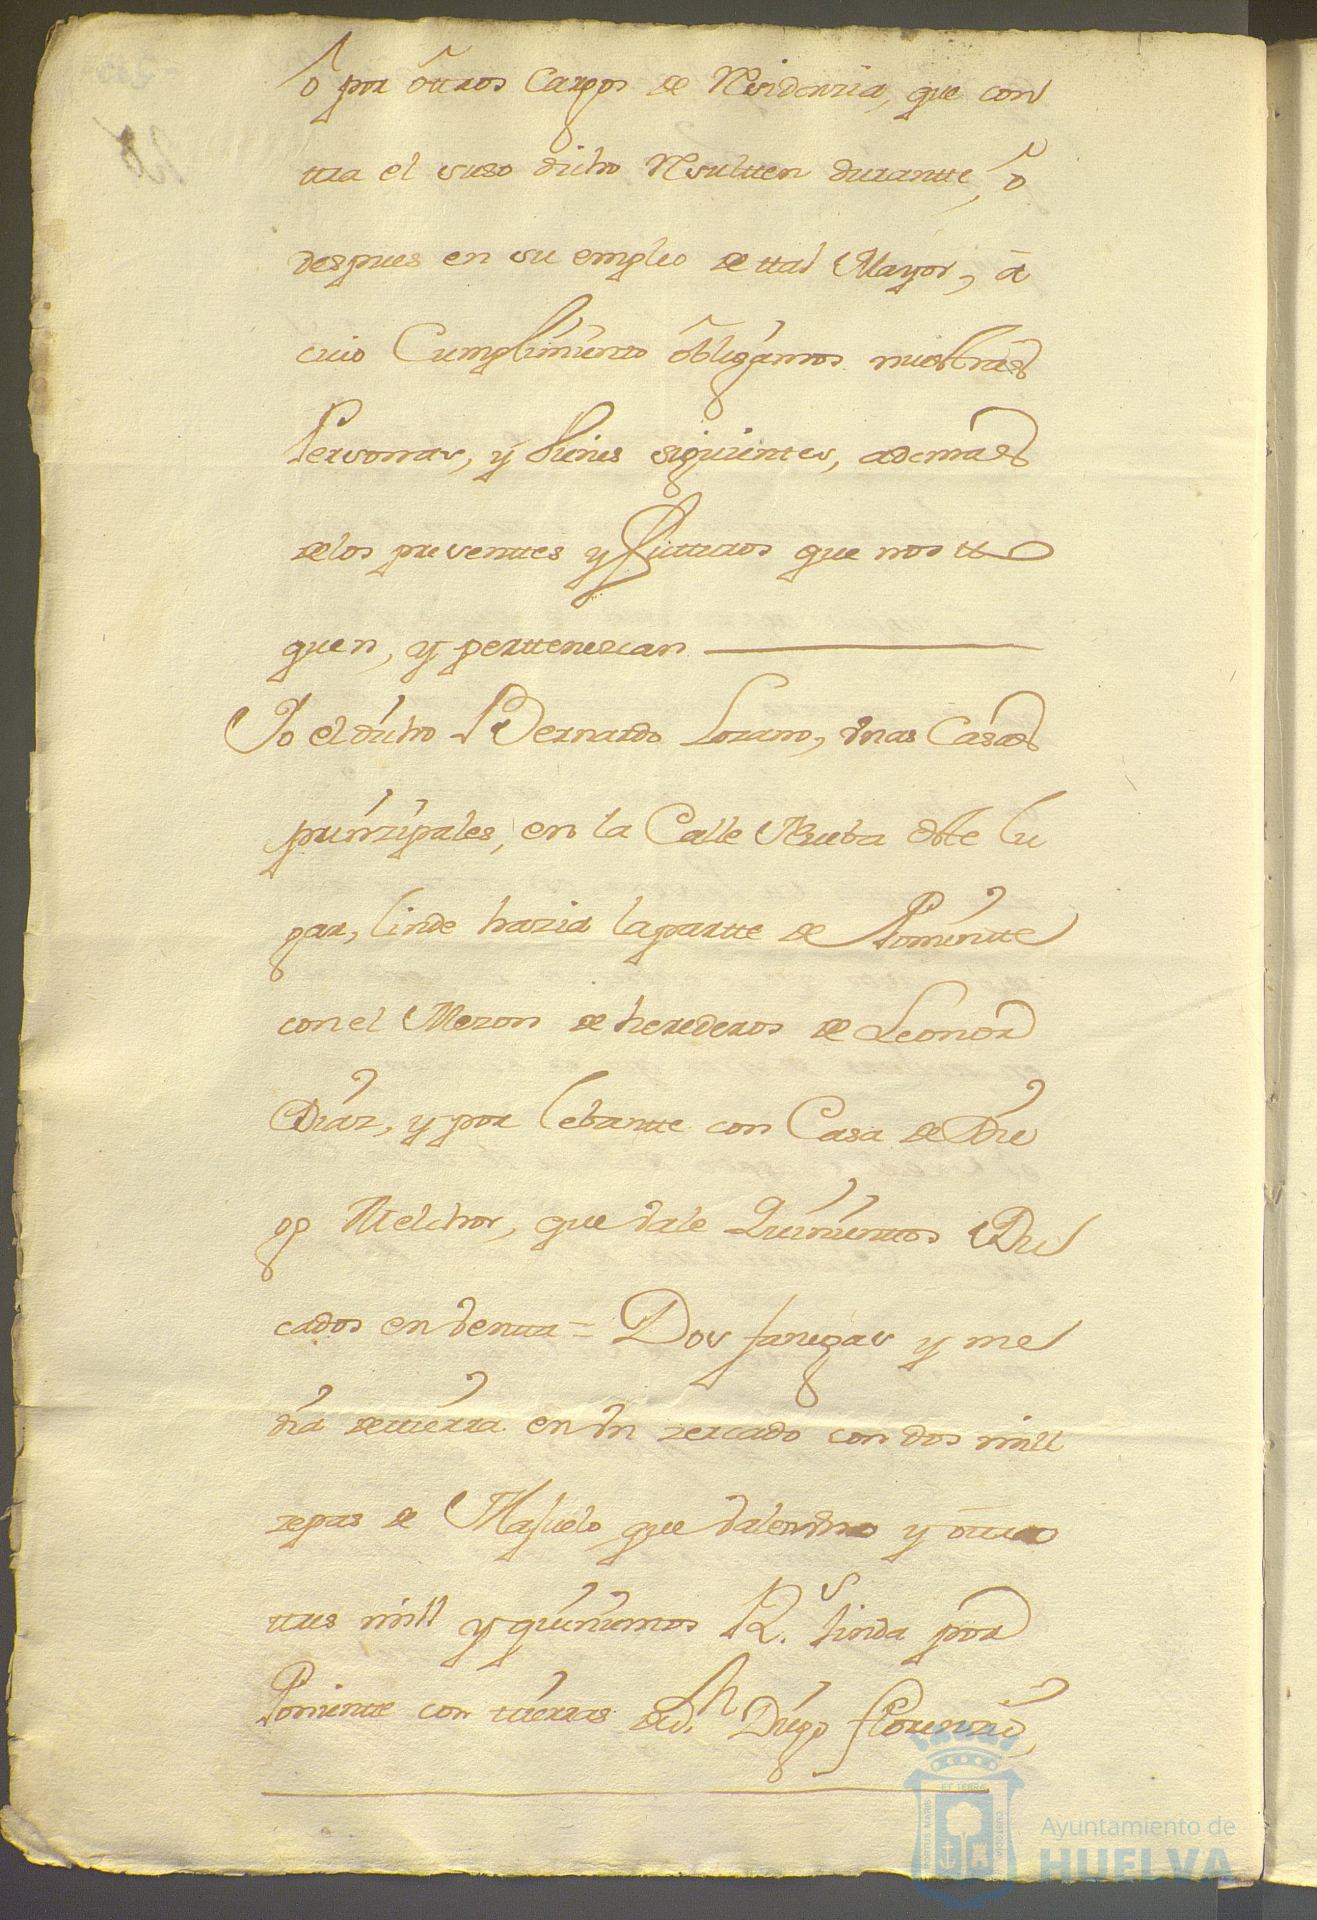 ô por ôttros Cargos de Residenzia, que con
ttra el suso dicho Resultten durantte, ô
despues en su empleo de ttal Mayor, â
cuio Cumplimiento ôbligamos nuestras
Personas, y bienes siguientes, ademas
de los presenttes y futturos que nos tto
quen, y perttenescan
Yo el dicho Bernardo Lozano, vnas Casas
prinzipales, en la Calle Rueba deste lu
gar, linde hazia la partte de Ponientte
con el Meson de herederos de Leonor
Diaz, y por lebantte con Casa de Die
go Melchor, que vale Quinienttos Du
cados en ventta = Dos fanegas y me
dia de ttierra en vn zercado con dos mill
zepas de Majuelo que valen vno y ôttro
ttres mill y quinienttos R.s linda por
Ponientte con ttierras de d.n Diego Florenzio,
ET TERRAE
PORTUS MARIS
CUSTODIA
Ayuntamiento de
HUELVA